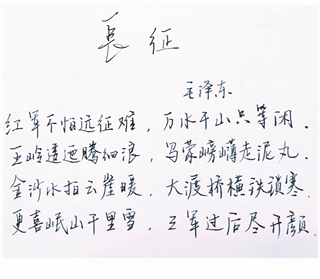 長征
毛泽东
红军不怕远征难，万水千山只等闲.
五岭逶迤腾细浪，乌蒙磅礴走泥丸.
金沙水拍云崖暖，大渡桥横铁锁寒.
更喜岷山千里雪，三军过后尽开颜.